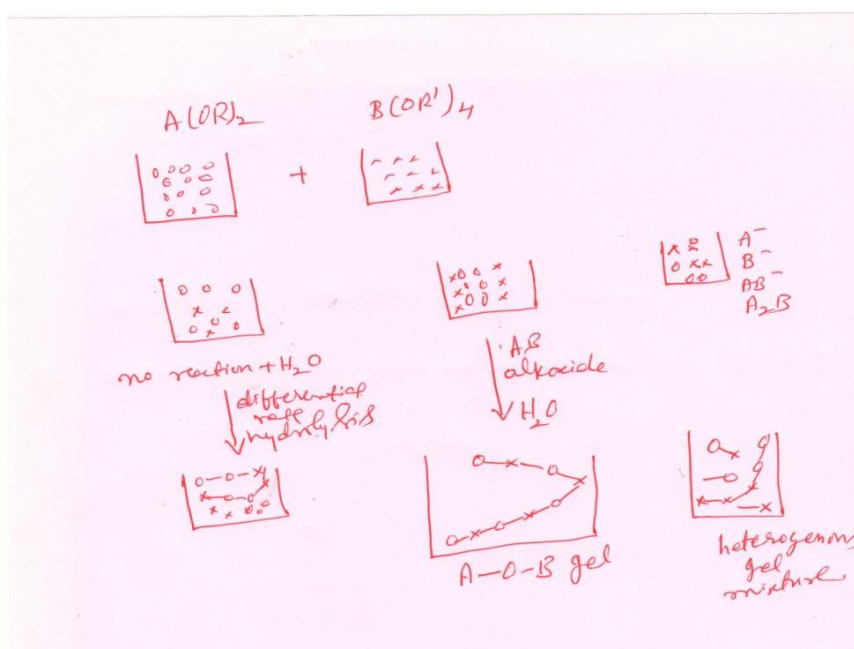 A(OR)₂
B(OR')₄
+
A⁻
B⁻
AB⁻
A₂B
no reaction + H₂O
differential
rate
hydrolysis
AB
alkoxide
H₂O
A-O-B gel
heterogenous
gel
mixture